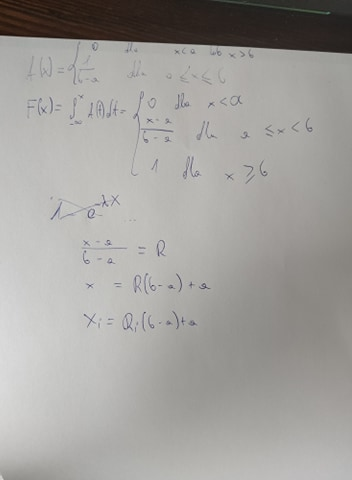 f(x) = { 0 dla x<a lub x>b
1/(b-a) dla a ≤ x ≤ b
F(x) = ∫_{-∞}^{x} f(t)dt = { 0 dla x<a
(x-a)/(b-a) dla a ≤ x < b
1 dla x ≥ b
1 - e^{-λx} ...
(x-a)/(b-a) = R
x = R(b-a)+a
X_i = R_i(b-a)+a